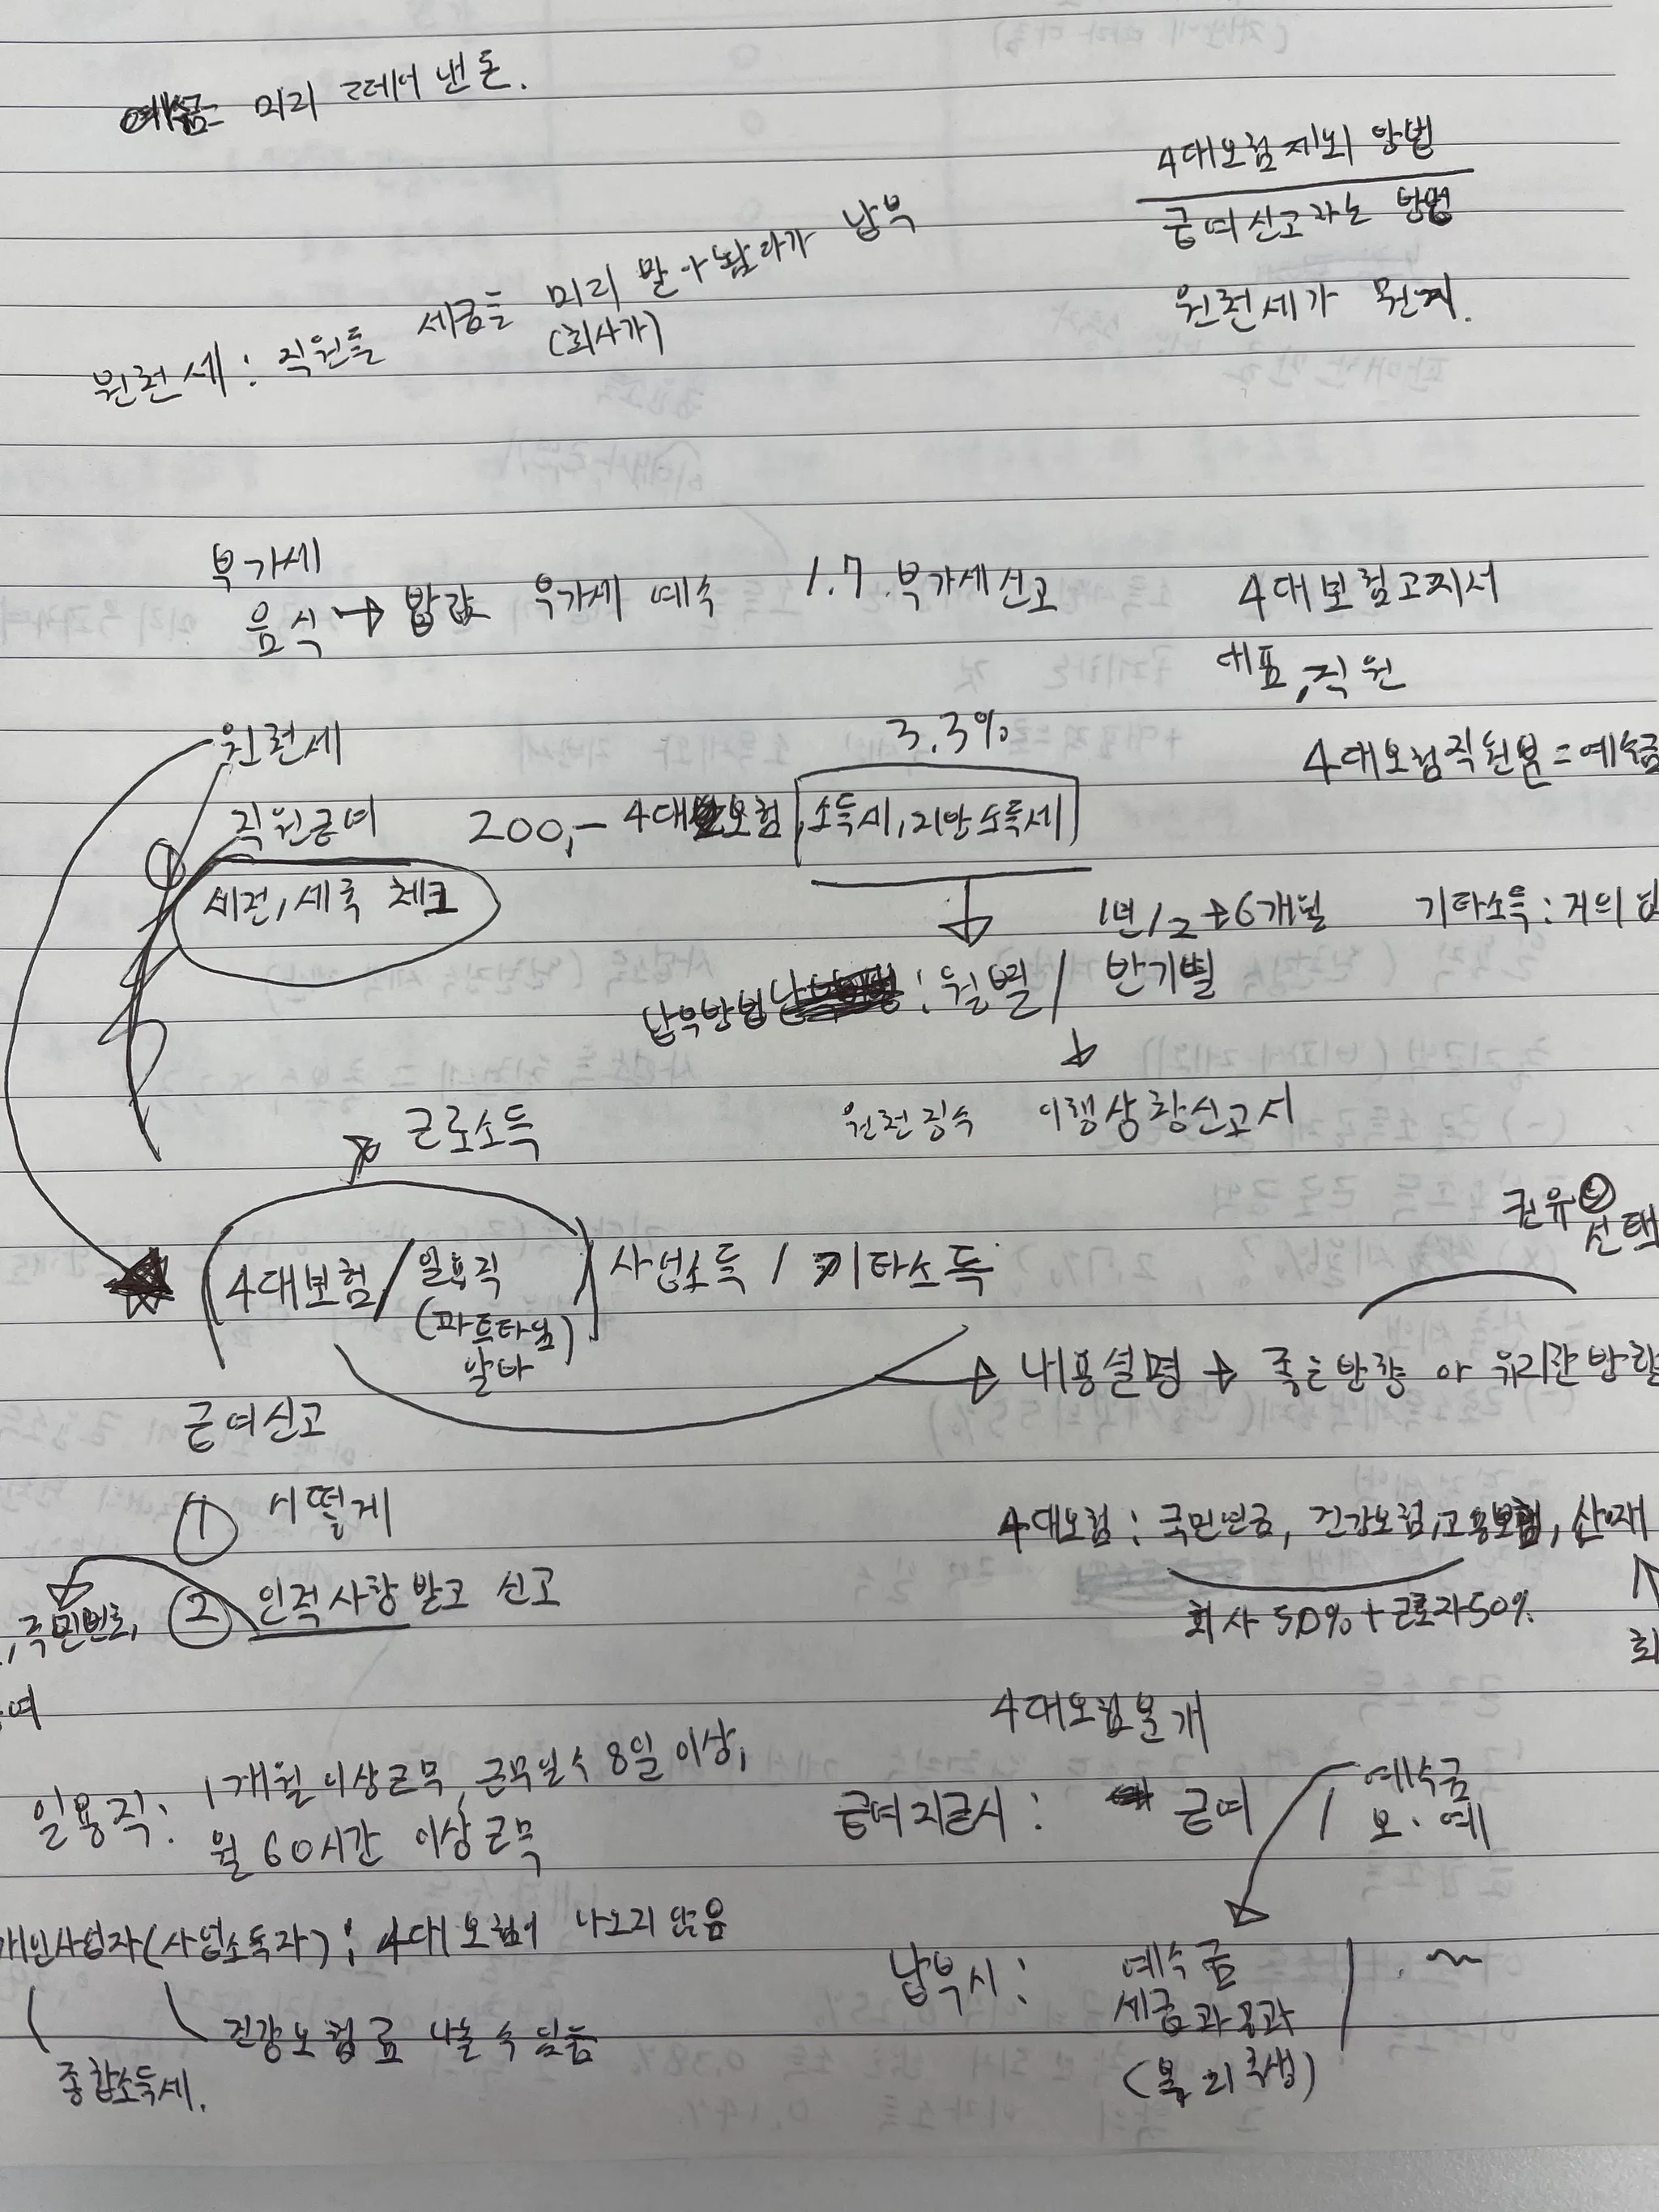 예수금= 미리 떼어 낸 돈.
4대보험제외 방법
급여신고라는 방법
원천세가 뭔지.
원천세: 직원들 세금을 미리 받아놨다가 납부
(회사가)
부가세
음식 → 밥값 부가세 예수 1.7.부가세신고
4대보험고지서
대표, 직원
4대보험직원분=예수금
원천세
3.3%
직원급여 200,- 4대보험, 소득세, 지방소득세
세전, 세후 체크
1년/2→6개월
기타소득: 거의
납부방법 : 월별/ 반기별
원천징수 이행상황신고서
근로소득
권유 선택
4대보험/일용직 / 사업소득 / 기타소득
(파트타임)
알바
→ 내용설명 → 죽는방향 아 유리한방향
급여신고
① 어떻게
② 인적사항 받고 신고
,주민번호,
여
4대보험: 국민연금, 건강보험,고용보험, 산재
회사 50%+근로자50%
회
4대보험분개
급여지급시: 급여 / 예수금
보·예
일용직: 1개월 이상근무, 근무일수 8일 이상,
월 60시간 이상근무
개인사업자(사업소득자): 4대보험이 나오지 않음
종합소득세.
건강보험료 나올 수 있음
납부시: 예수금
세금과공과
(복리후생)